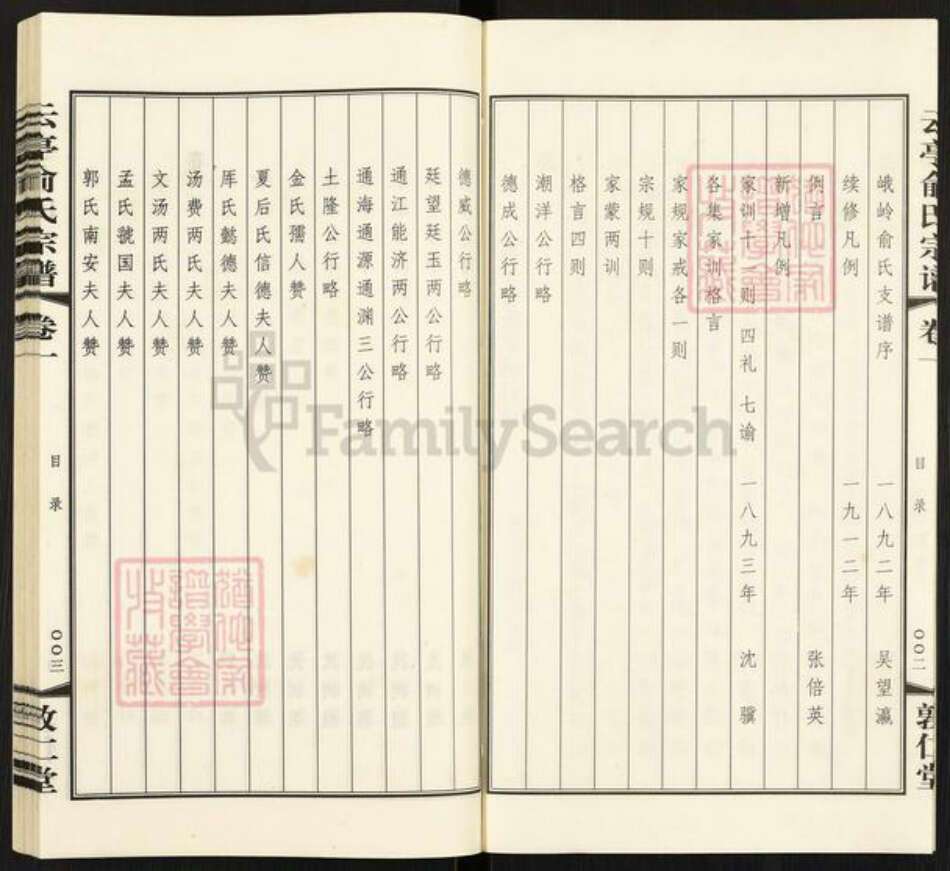 峨岭俞氏支谱序 一八九二年 吴望瀛
续修凡例 一九一二年
例言 张倍英
新增凡例
家训十二则 四礼 七谕 一八九三年 沈骥
各集家训格言
家规家戒各一则
宗规十则
家蒙两训
格言四则
潮洋公行略
德成公行略
云亭俞氏宗谱 卷一 目录 〇〇二 敦仁堂
德威公行略
廷望廷玉两公行略
通江能济两公行略
通海通源通渊三公行略
土隆公行略
金氏孺人赞
夏后氏信德夫人赞
厍氏懿德夫人赞
汤费两氏夫人赞
文汤两氏夫人赞
孟氏虢国夫人赞
郭氏南安夫人赞
云亭俞氏宗谱 卷一 目录 〇〇三 敦仁堂
FamilySearch